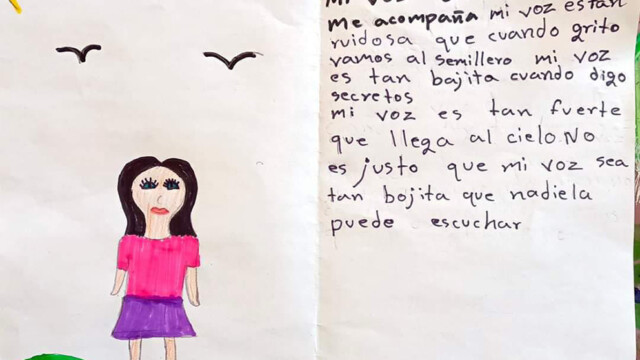 Mi voz
me acompaña mi voz es tan
ruidosa que cuando grito
vamos al semillero mi voz
es tan bajita cuando digo
secretos
mi voz es tan fuerte
que llega al cielo No
es justo que mi voz sea
tan bojita que nadiela
puede escuchar